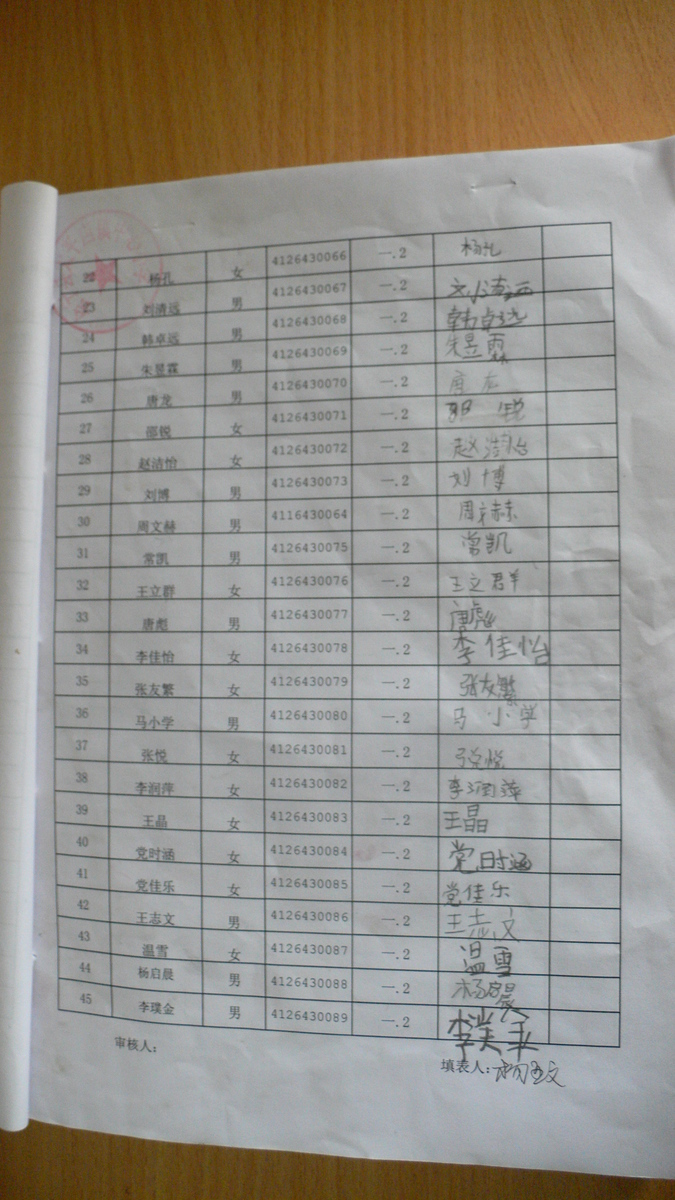 22 杨孔 女 4126430066 一.2 杨孔
23 刘清远 男 4126430067 一.2 刘清远
24 韩卓远 男 4126430068 一.2 韩卓远
25 朱昱霖 男 4126430069 一.2 朱昱霖
26 唐龙 男 4126430070 一.2 唐龙
27 邵锐 女 4126430071 一.2
28 赵洁怡 女 4126430072 一.2 赵洁怡
29 刘博 男 4126430073 一.2 刘博
30 周文赫 男 4116430064 一.2 周文赫
31 常凯 男 4126430075 一.2 常凯
32 王立群 女 4126430076 一.2 王立群
33 唐彪 男 4126430077 一.2 唐彪
34 李佳怡 女 4126430078 一.2 李佳怡
35 张友繁 女 4126430079 一.2 张友繁
36 马小学 男 4126430080 一.2 马小学
37 张悦 女 4126430081 一.2 张悦
38 李润萍 女 4126430082 一.2 李润萍
39 王晶 女 4126430083 一.2 王晶
40 党时涵 女 4126430084 一.2 党时涵
41 党佳乐 女 4126430085 一.2 党佳乐
42 王志文 男 4126430086 一.2 王志文
43 温雪 女 4126430087 一.2 温雪
44 杨启晨 男 4126430088 一.2 杨启晨
45 李璞金 男 4126430089 一.2
审核人: 填表人: